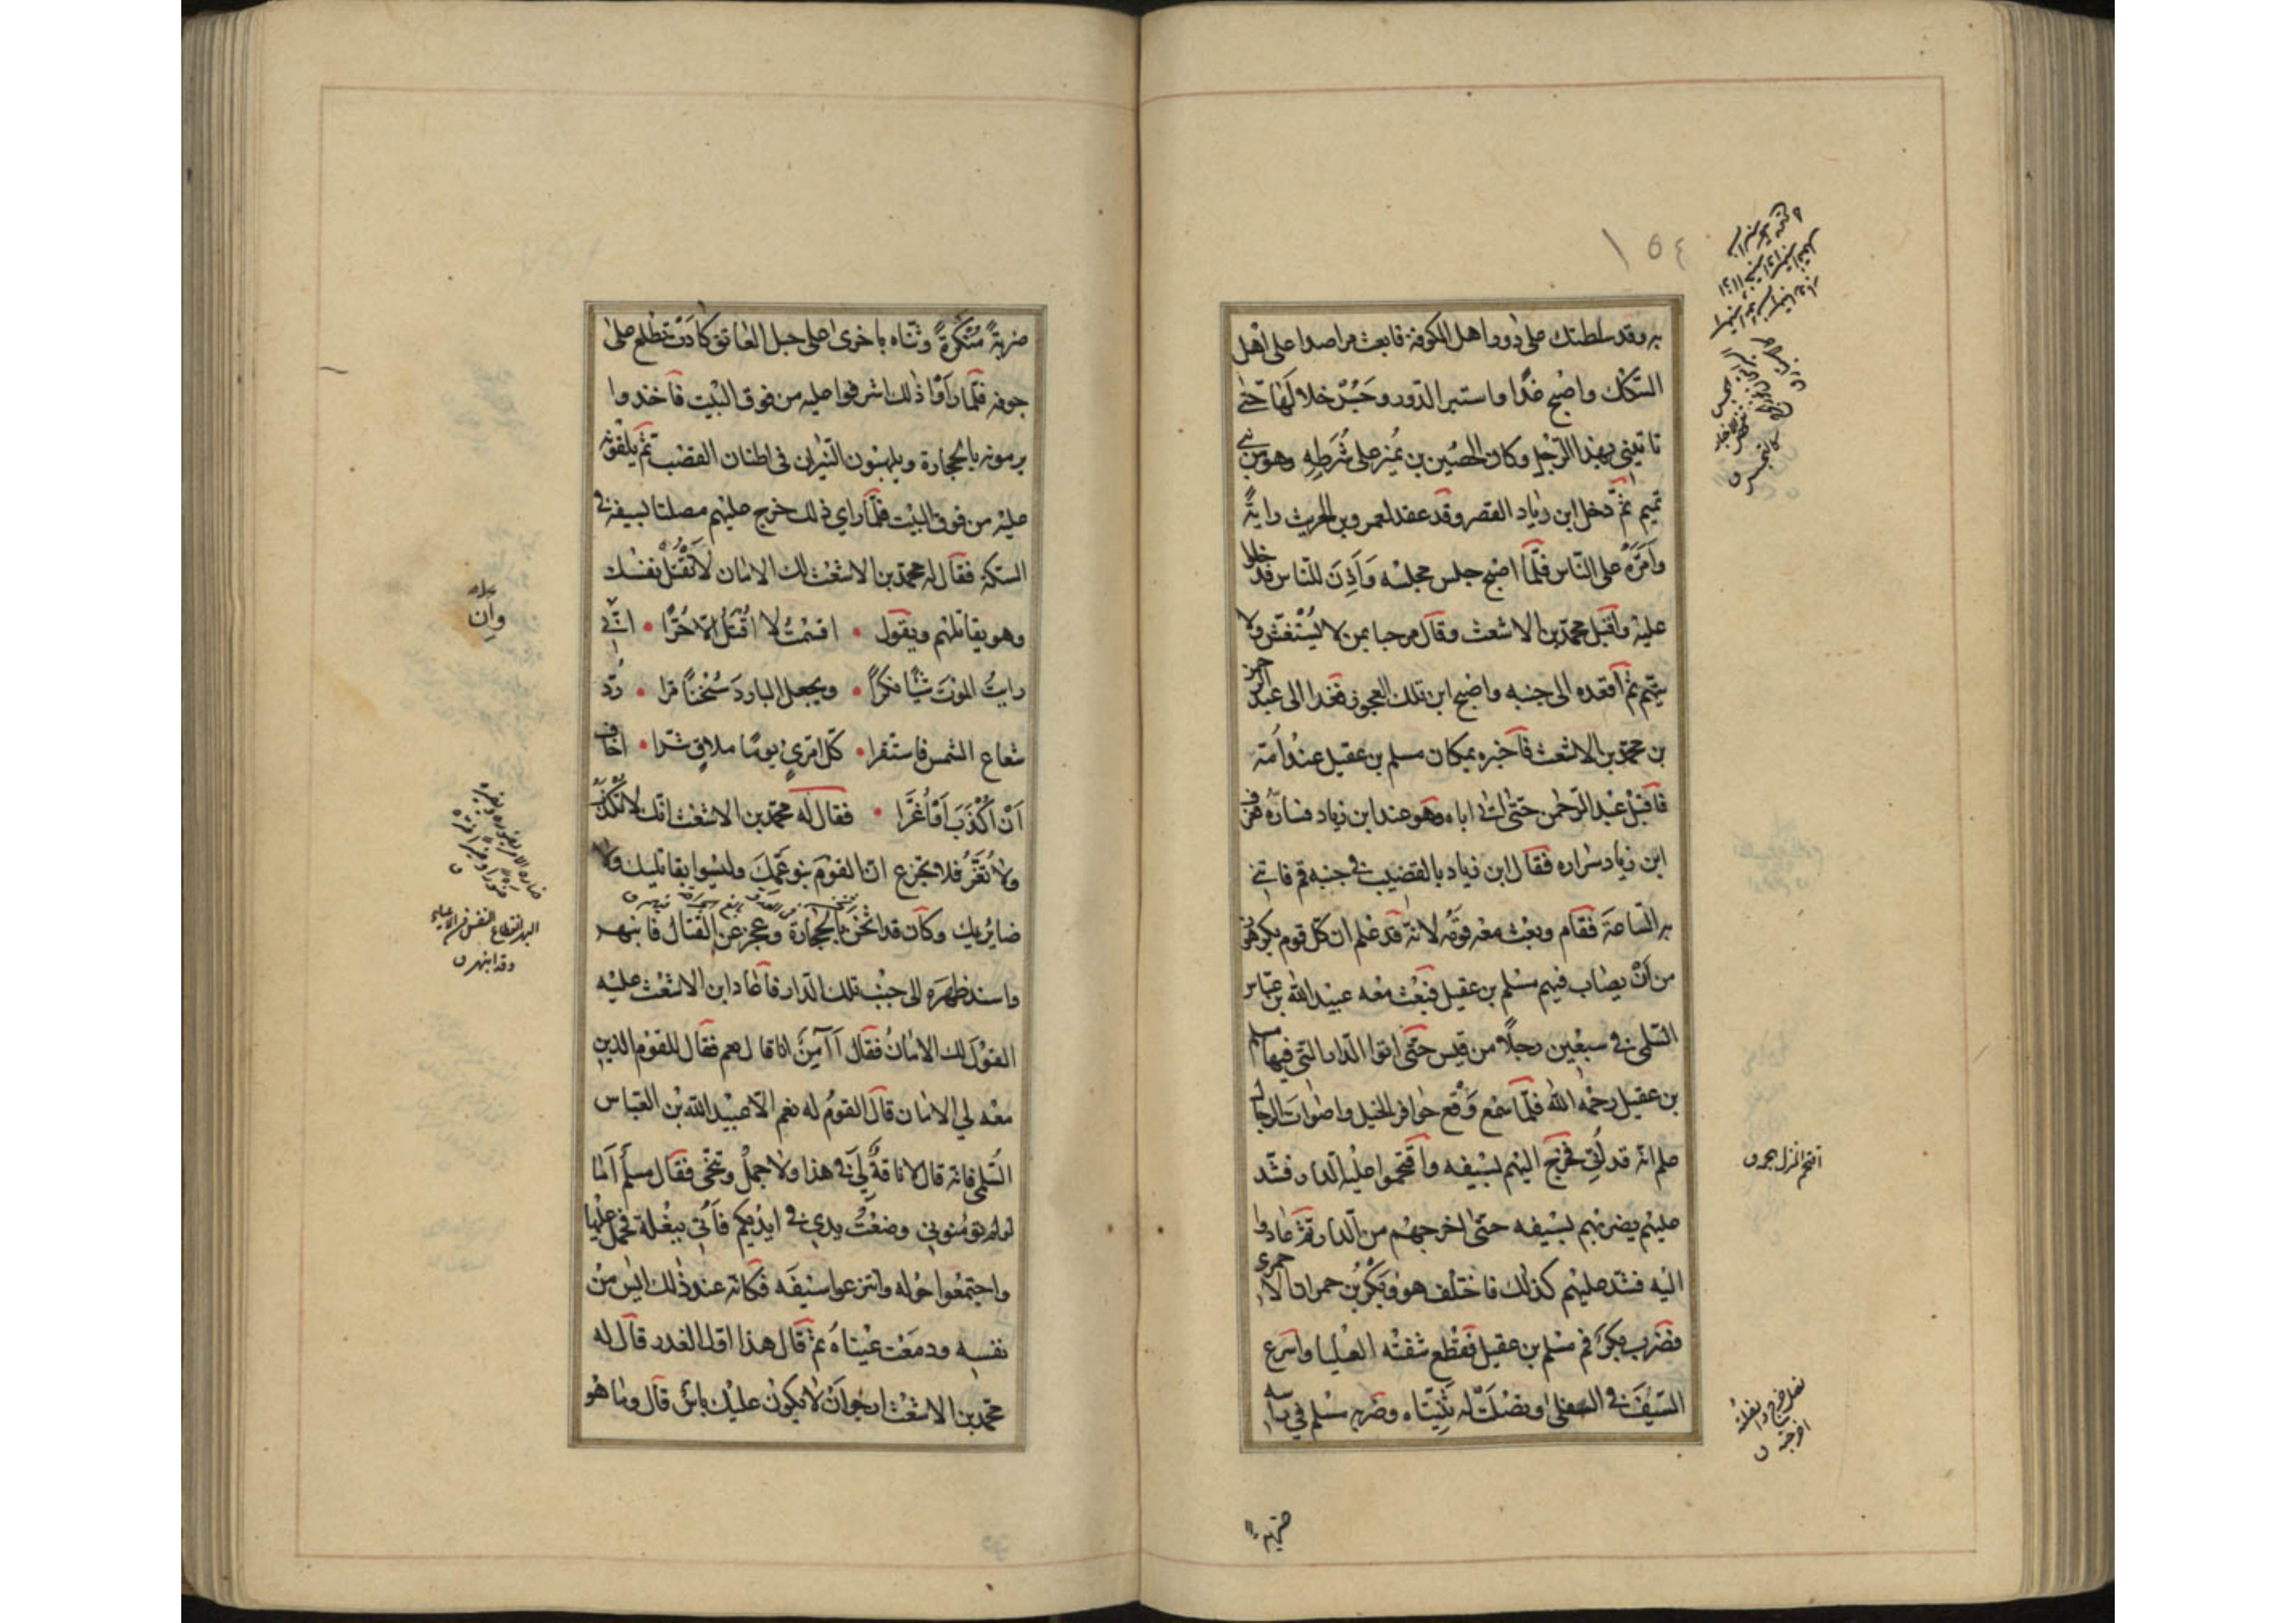 ١٥٤
به وقد سلطتك على دور اهل الكوفة فابعث مراصدا على اهل
السكك واصبح غدا واستبر الدور وجس خلالها حتى
تاتيني بهذا الرجل وكان الحصين بن نمير على شرطه وهو من بني
تميم ثم دخل ابن زياد القصر وقد عقد لعمرو بن الحريث راية
وامّره على الناس فلما اصبح جلس مجلسه واذن للناس فدخلوا
عليه واقبل محمد بن الاشعث وقال مرحبا بمن لا يستغش ولا
يتهم ثم اقعده الى جنبه واصبح ابن تلك العجوز فغدا الى عبد الرحمن
بن محمد بن الاشعث فاخبره بمكان مسلم بن عقيل عند امّه
فاقبل عبد الرحمن حتى اتى اباه وهو عند ابن زياد فسارّه فعرف
ابن زياد سراره فقال ابن زياد بالقضيب في جنبه قم فاتني
به الساعة فقام وبعث معه قومه لانه قد علم ان كل قوم يكرهون
من ان يصاب فيهم مسلم بن عقيل فبعث معه عبيد الله بن عباس
السلمي في سبعين رجلا من قيس حتى اتوا الدار التي فيها مسلم
بن عقيل رحمه الله فلما سمع وقع حوافر الخيل واصوات الرجال
علم انه قد اُتي فخرج اليهم بسيفه واقتحموا عليه الدار فشد
عليهم يضربهم بسيفه حتى اخرجهم من الدار ثم عادوا
اليه فشد عليهم كذلك فاختلف هو وبكر بن حمران الاحمري
فضرب بكر فم مسلم بن عقيل فقطع شفته العليا واسرع
السيف في السفلى وفصلت له ثنيتاه وضربه مسلم في راسه
ضربة
اقتحم المنزل هجم ق
ضربة منكرة وثناه باخرى على حبل العاتق كادت تطلع على
جوفه فلما راوا ذلك اشرفوا عليه من فوق البيت فاخذوا
يرمونه بالحجارة ويلهبون النيران في اطنان القصب ثم يلقونه
عليه من فوق البيت فلما راى ذلك خرج عليهم مصلتا بسيفه في
السكة فقال له محمد بن الاشعث لك الامان لا تقتل نفسك
وهو يقاتلهم ويقول • اقسمت لا اقتل الا حرا • انّي
رايت الموت شيئا نكرا • ويجعل البارد سخنا مرا • ردّ
شعاع الشمس فاستقرا • كل امرئ يوما ملاق شرا • اخاف
ان اكذب او اغرّا • فقال له محمد بن الاشعث انك لا تكذب
ولا تغر فلا تجزع ان القوم بنو عمك وليسوا بقاتليك ولا
ضايريك وكان قد اثخن بالحجارة وعجز عن القتال فانبهر
واسند ظهره الى جنب تلك الدار فاعاد ابن الاشعث عليه
القول لك الامان فقال اآمن انا قال نعم فقال للقوم الذين
معه لي الامان قال القوم له نعم الا عبيد الله بن العباس
السلمي فانه قال لا ناقة لي في هذا ولا جمل وتنحى فقال مسلم اما
لو لم تؤمنوني وضعت يدي في ايديكم فاُتي ببغلة فحمل عليها
واجتمعوا حوله وانتزعوا سيفه فكانه عند ذلك ايس من
نفسه ودمعت عيناه ثم قال هذا اول الغدر قال له
محمد بن الاشعث ارجو ان لا يكون عليك باس قال وما هو
وان
البهر انقطاع النفس من الاعياء
وقد انبهر ق